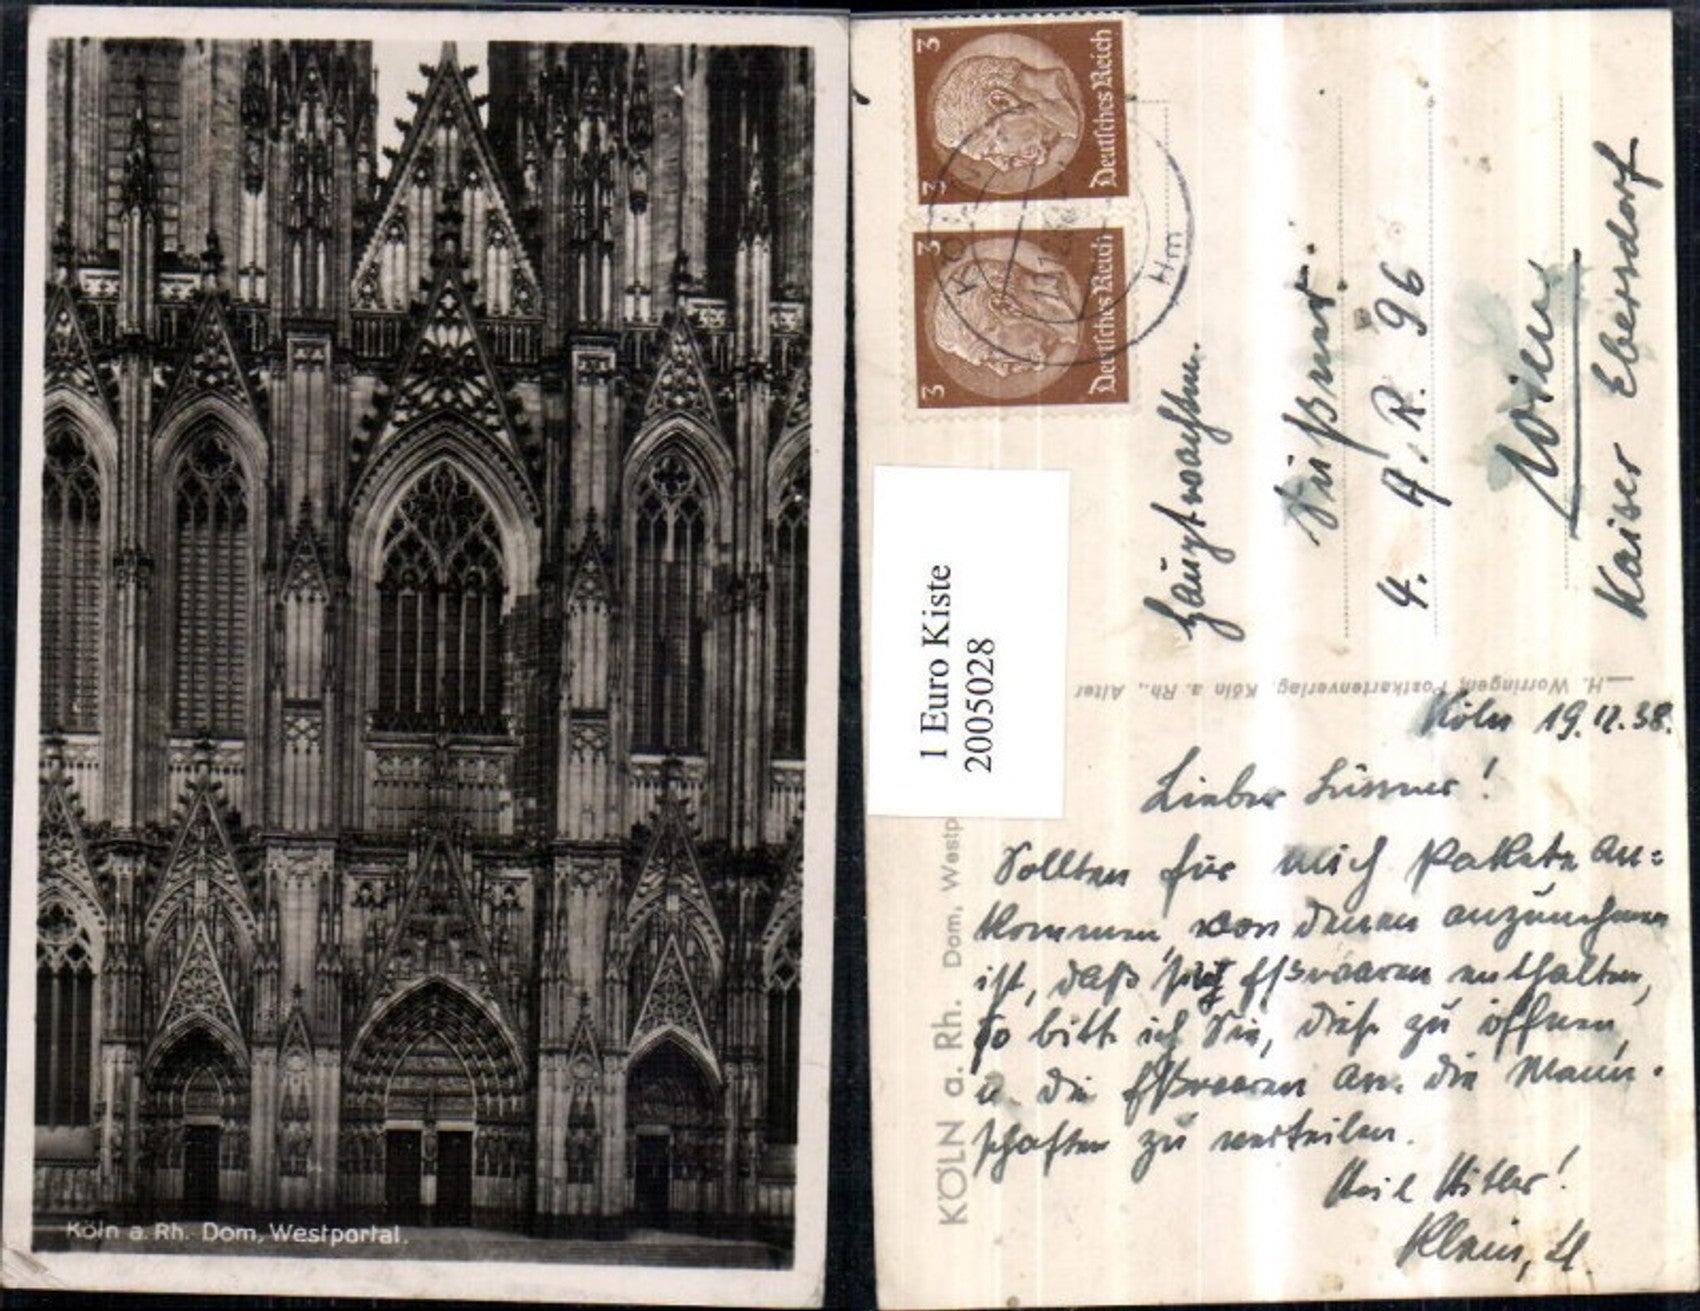 Köln a. Rh. Dom, Westportal.
3 3
Deutsches Reich
3 3
Deutsches Reich
KÖLN
Hauptwachtm.
4. A. R. 96
Wien
Kaiser Ebersdorf
1 Euro Kiste
2005028
H. Worringen, Postkartenverlag, Köln a. Rh., Alter
KÖLN a. Rh. Dom, Westp
Köln 19.12.38.
Lieber Süssner!
Sollten für mich Pakete an=
kommen, von denen anzunehmen
ist, daß sie Eßwaaren enthalten,
so bitte ich Sie, diese zu öffnen,
u. die Eßwaaren an die Mann-
schaften zu verteilen.
Heil Hitler!